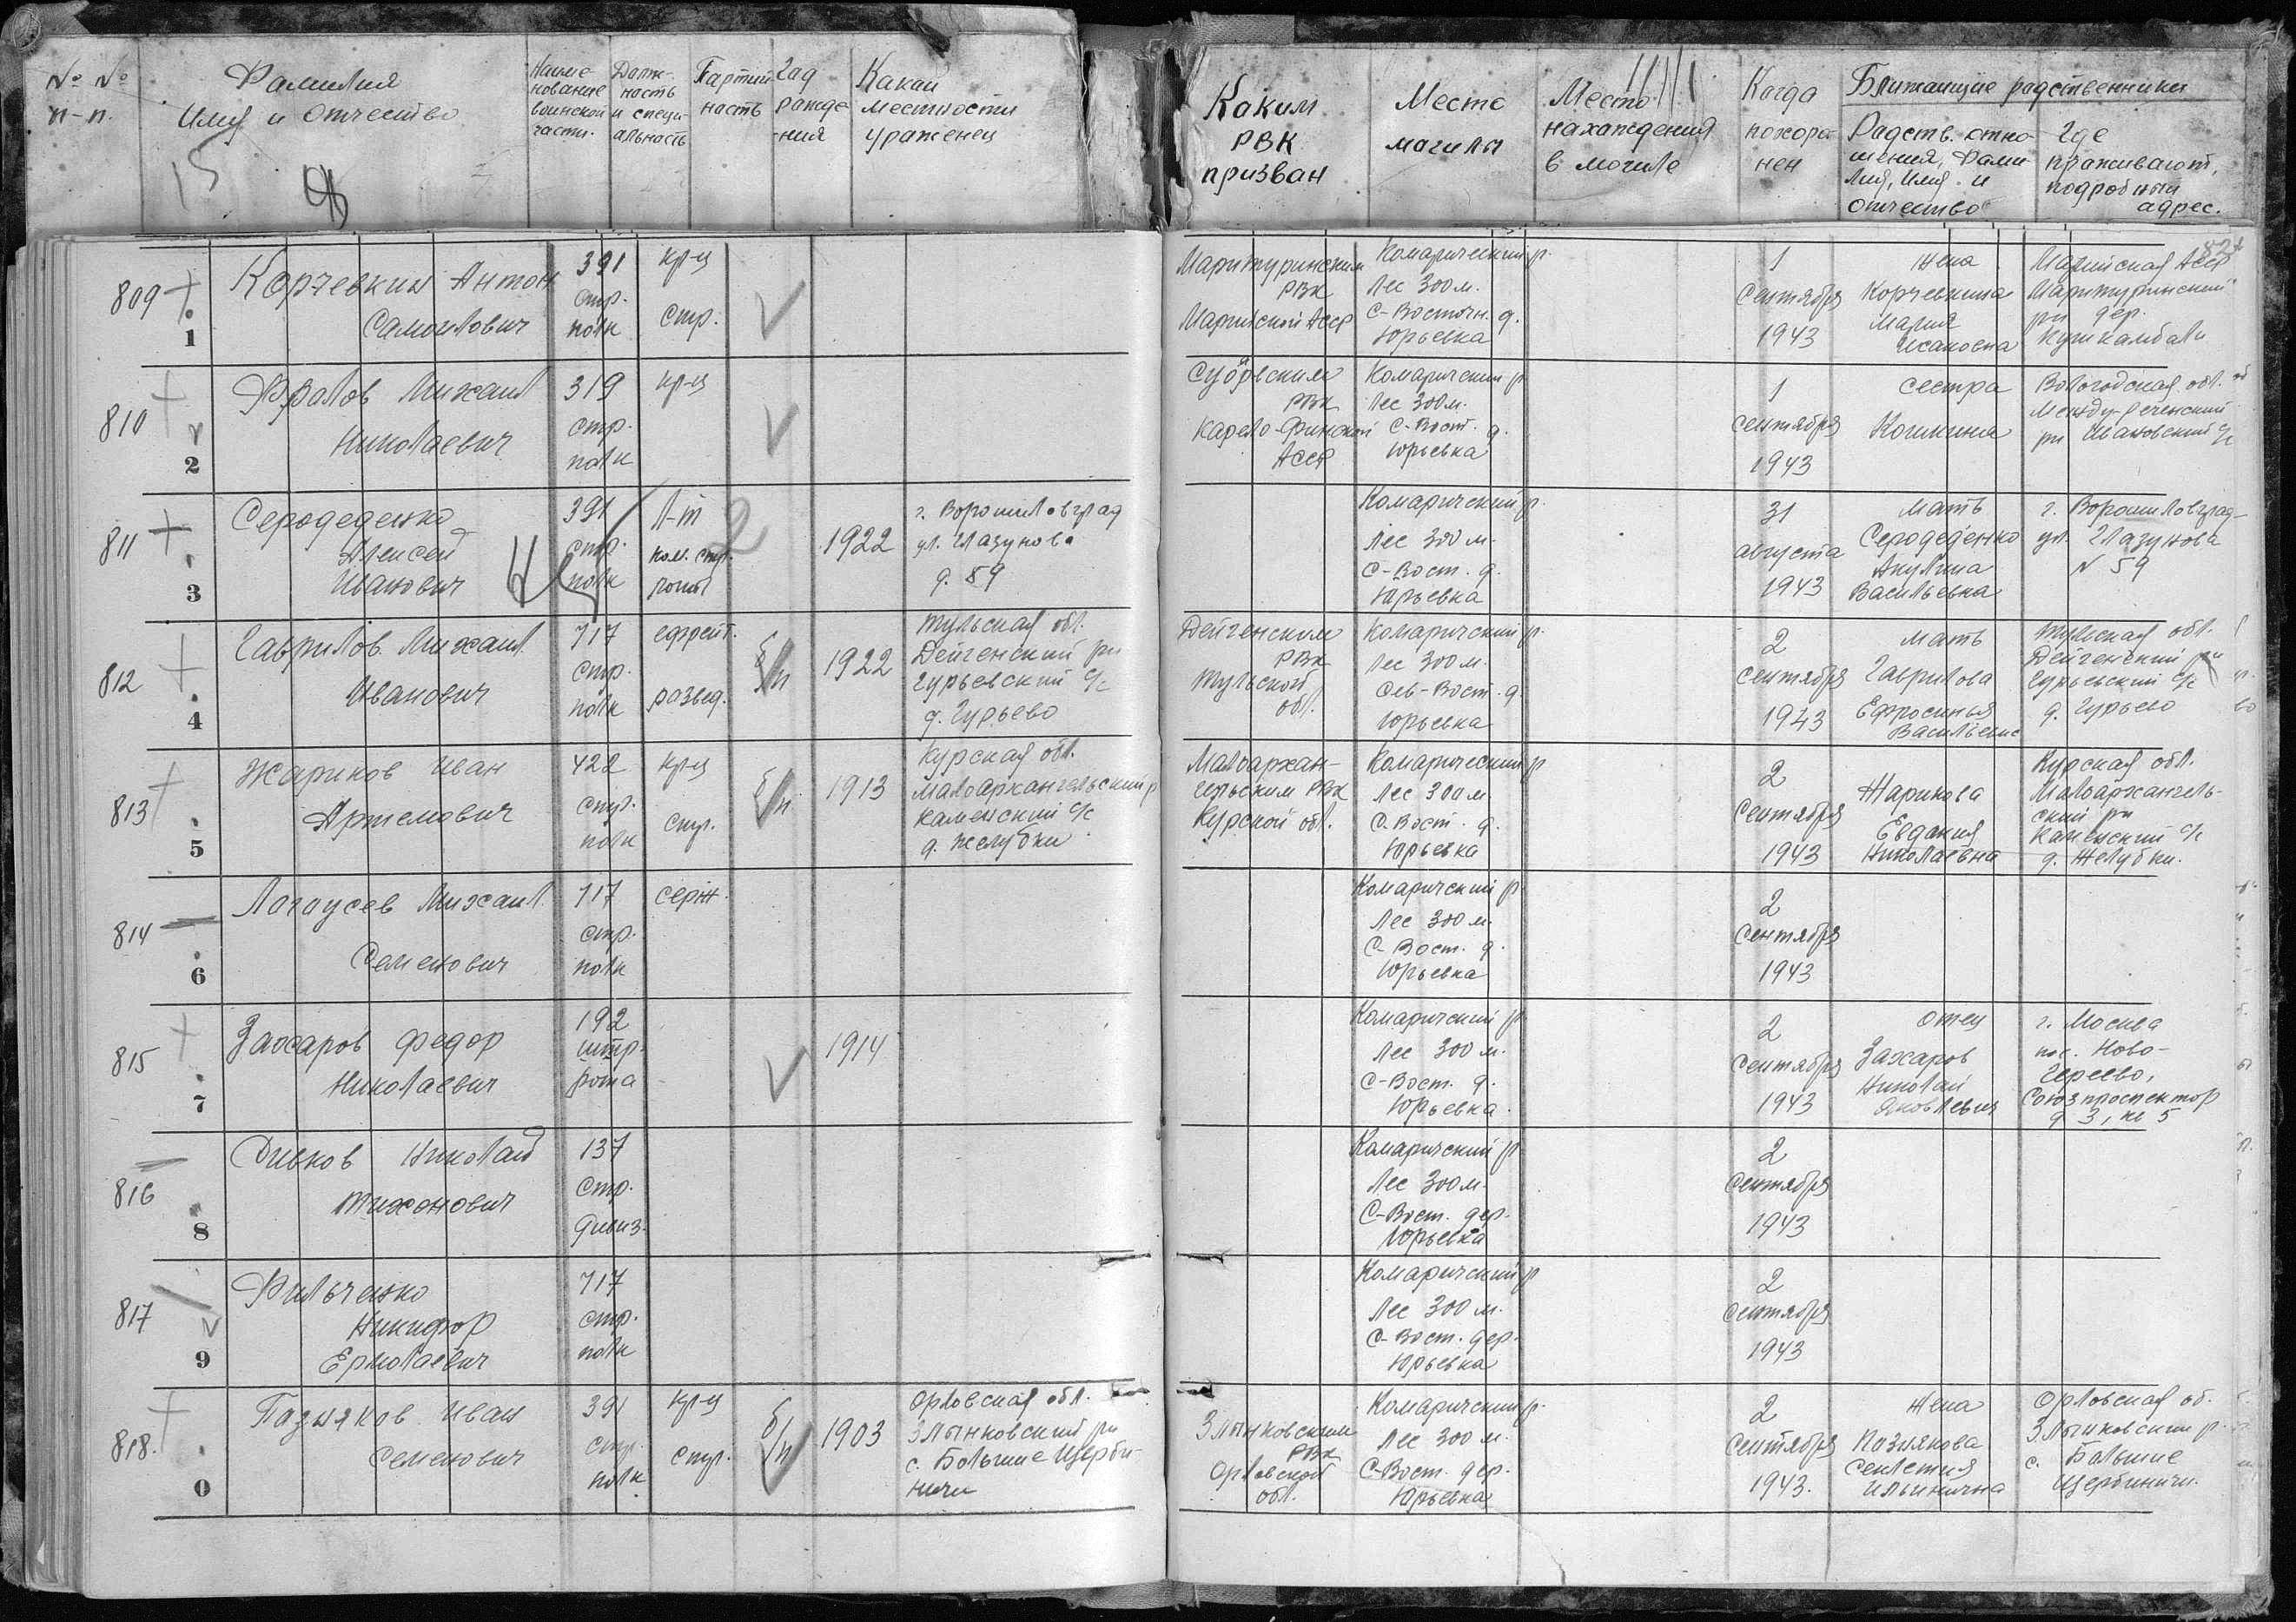 № №
п-п.
Фамилия
Имя и Отчество
Наиме-
нование
воинской
части.
Долж-
ность
и специ-
альность
Партий
ность
Год
рожде
-ния
Какой
местности
уроженец
Каким
РВК
призван
Место
могилы
Место
нахождения
в могиле
Когда
похоро-
нен
Ближайшие родственники
Родств. отно-
шения, Фами
лия, Имя и
отчество
Где
проживают,
подробный
адрес.
809
1
Корчевкин Антон
Самойлович
391
стр.
полк
кр-ц
стр.
Маритуринским
РВК
Марийской АССР
Комаричский р.
Лес 300 м.
С-Восточн. д.
Юрьевка
1
Сентября
1943
Жена
Корчевкина
Мария
Исаковна
Марийская АССР
Маритуринский
рн дер.
Кушкамбали
810
2
Фролов Михаил
Николаевич
319
стр.
полк
кр-ц
РВК
Карело-Финской
АССР
Комаричский р
Лес 300 м.
С-Вост. д.
Юрьевка
1
сентября
1943
сестра
Кошкина
Вологодская обл.
Между-реченский
рн Ивановский с/с
811
3
Серодеденко
Алексей
Иванович
391
стр.
полк
Л-т
ком. стр.
роты
1922
г. Ворошиловград
ул. Глазунова
д. 59
Комаричский р.
Лес 300 м.
С-Вост. д.
Юрьевка
31
августа
1943
Мать
Серодеденко
Акулина
Васильевна
г. Ворошиловград-
ул. Глазунова
№ 59
812
4
Гаврилов Михаил
Иванович
717
стр.
полк
ефрейт.
развед.
б/п
1922
Тульская обл.
Дейгенский рн
Гурьевский с/с
д. Гурьево
Дейгенским
РВК
Тульской
обл.
Комаричский р.
Лес 300 м.
Сев-Вост. д.
Юрьевка
2
сентября
1943
Мать
Гаврилова
Ефросинья
Тульская обл.
Дейгенский рн
Гурьевский с/с
д. Гурьево
813
5
Жариков Иван
Артемович
422
стр.
полк
кр-ц
стр.
б/п
1913
Курская обл.
Малоархангельский р
Каменский с/с
д. Желубки
Малоархан-
гельским РВК
Курской обл.
Комаричский р
Лес 300 м.
С-Вост. д.
Юрьевка
2
Сентября
1943
Жарикова
Евдокия
Николаевна
Курская обл.
Малоархангель-
ский рн
Каменский с/с
д. Желубки.
814
6
Михаил
Семенович
717
стр.
полк
серж.
Комаричский р
Лес 300 м.
С-Вост. д.
Юрьевка
2
Сентября
1943
815
7
Захаров Федор
Николаевич
192
штр.
рота
1914
Комаричский р
Лес 300 м.
С-Вост. д.
Юрьевка.
2
сентября
1943
отец
Захаров
Николай
Яковлевич
г. Москва
пос. Ново-
Гереево,
Союзпроспектор
д 3, кв 5
816
8
Дивков Николай
Тихонович
137
стр.
дивиз.
Комаричский р
Лес 300 м.
С-Вост. дер.
Юрьевка
2
Сентября
1943
817
9
Фильченко
Никифор
Ермолаевич
717
стр.
полк
Комаричский р
Лес 300 м.
С-Вост. дер.
Юрьевка
2
сентября
1943
818.
0
Позняков Иван
Семенович
391
стр.
полк
кр-ц
стр.
б/п
1903
Орловская обл.
Злынковский рн
с. Большие Щерби-
ничи
Злынковским
РВК
Орловской
обл.
Комаричский р.
Лес 300 м.
С-Вост. дер.
Юрьевка
2
Сентября
1943.
Жена
Познякова
Ильинична
Орловская об.
Злынковский р.
с. Большие
Щербиничи.